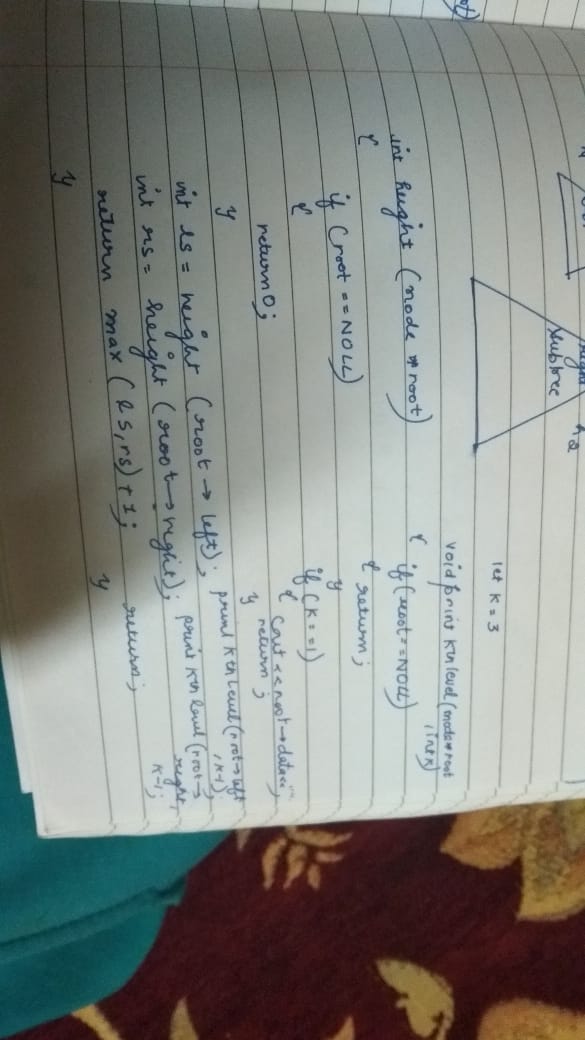 subtree
h2
int height (node * root)
{
if (root == NULL)
{
return 0;
}
int ls = height (root → left);
int rs = height (root → right);
return max (ls, rs) + 1;
}
let K = 3
void print Kth level (node * root
, int K)
{
if (root == NULL)
{ return;
}
if (K == 1)
{ cout << root → data <<
return;
}
print Kth level (root → left
, K-1);
print Kth level (root →
right,
K-1;
return;
}